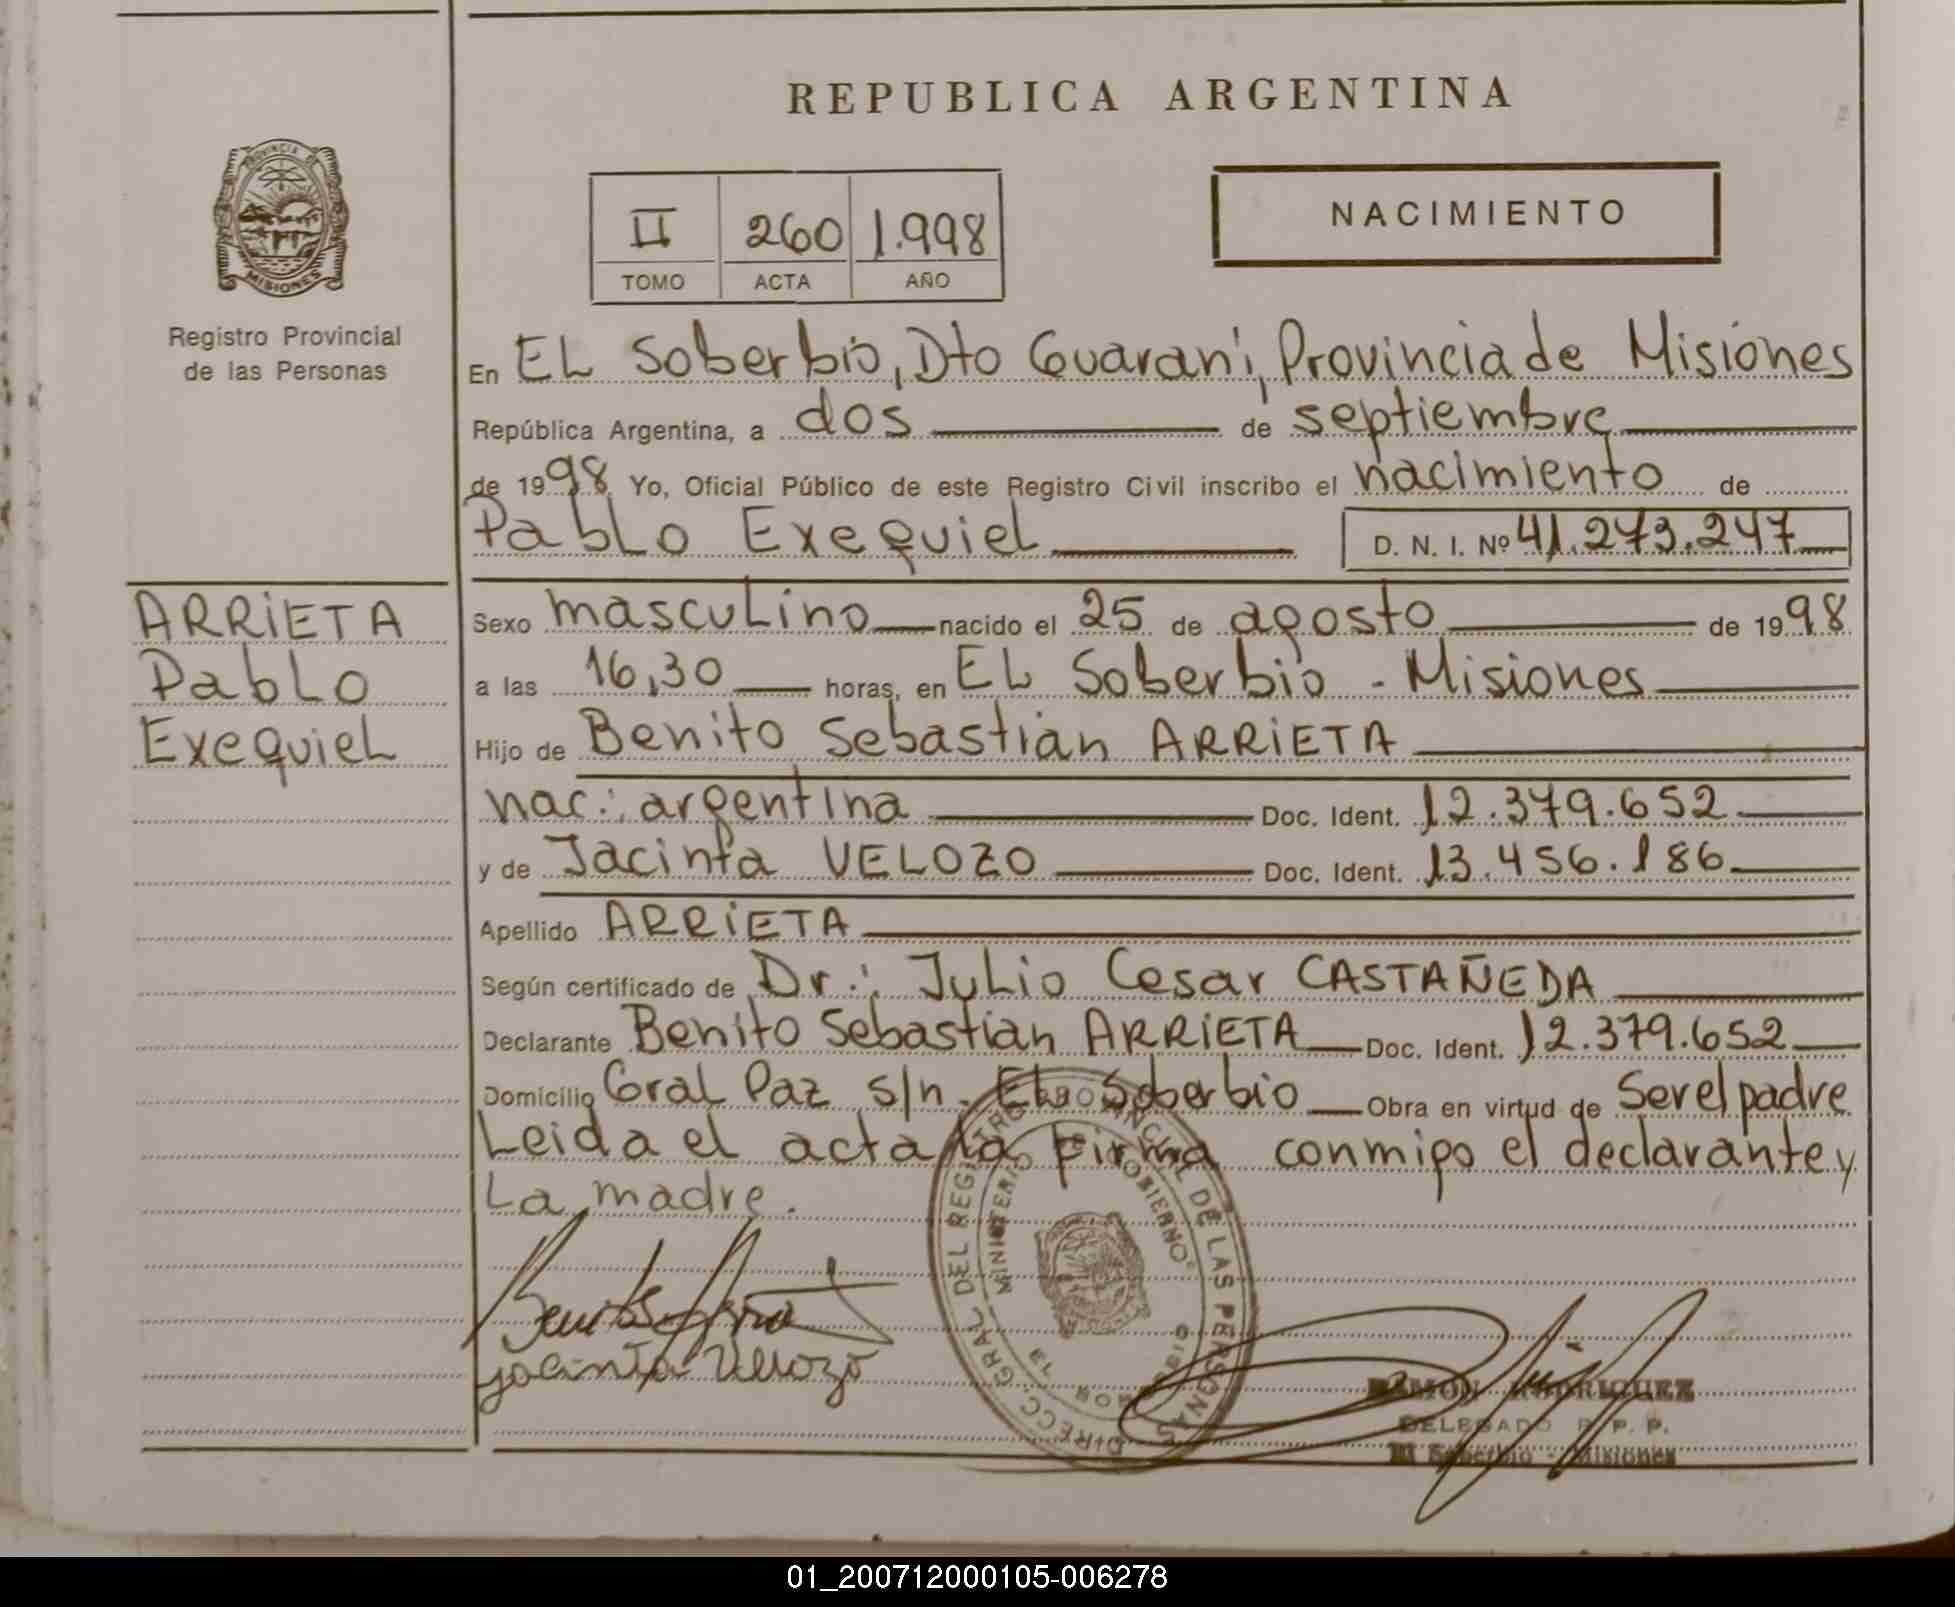 REPUBLICA ARGENTINA
PROVINCIA DE
MISIONES
Registro Provincial
de las Personas
II 260 1.998
TOMO ACTA AÑO
NACIMIENTO
En EL Soberbio, Dto Guaraní, Provincia de Misiones
República Argentina, a dos de septiembre
de 1998 Yo, Oficial Público de este Registro Civil inscribo el nacimiento de
Pablo Exequiel D. N. I. Nº 41.273.247
ARRIETA
Pablo
Exequiel
Sexo masculino nacido el 25 de agosto de 1998
a las 16,30 horas, en EL Soberbio - Misiones
Hijo de Benito Sebastián ARRIETA
nac.: argentina Doc. Ident. 12.379.652
y de Jacinta VELOZO Doc. Ident. 13.456.186
Apellido ARRIETA
Según certificado de Dr.: Julio Cesar CASTAÑEDA
Declarante Benito Sebastián ARRIETA Doc. Ident. 12.379.652
Domicilio Gral Paz s/n. El Soberbio Obra en virtud de Ser el padre
Leida el acta la firma conmigo el declarante y
La madre.
DIRECC. GRAL. DEL REGISTRO PROVINCIAL DE LAS PERSONAS
MINISTERIO GOBIERNO
Jacinta Velozo
RAMON RODRIGUEZ
DELEGADO R. P. P.
El Soberbio - Misiones
01_200712000105-006278